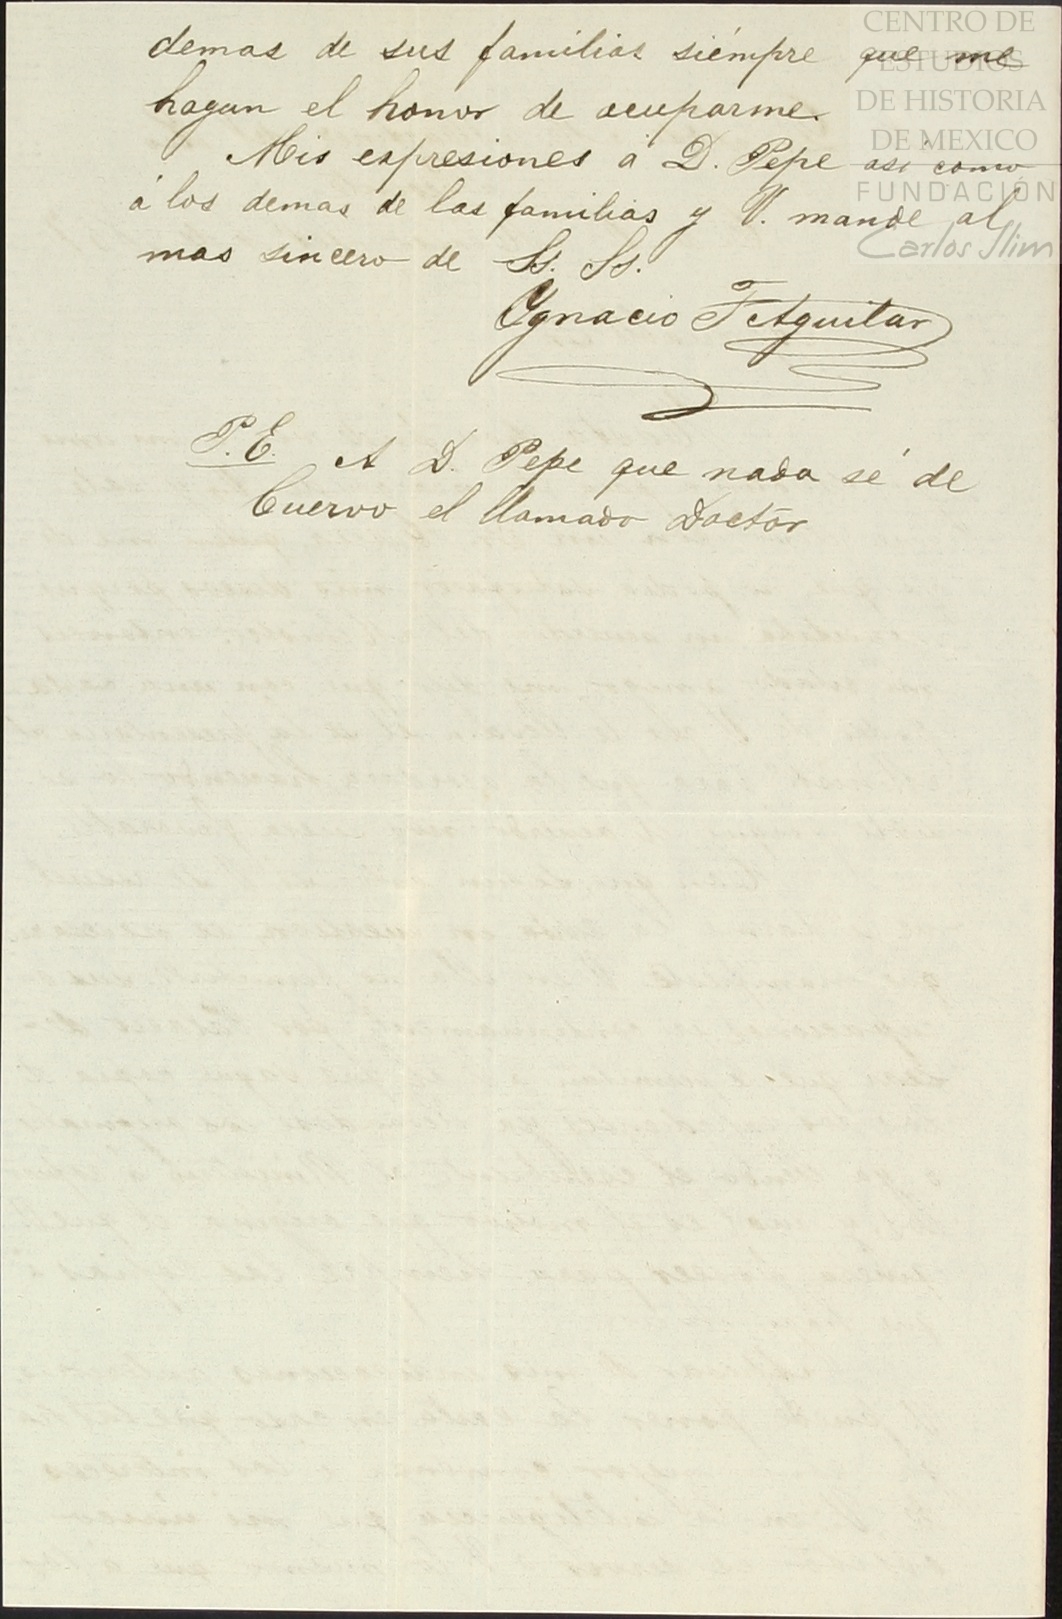 demas de sus familias siémpre que me
hagan el honor de ocuparme.
Mis expresiones á D. Pepe asi como
á los demas de las familias y V. mande al
mas sincero de Ss. Ss.
Ygnacio F Aguilar
P.E. A D. Pepe que nada sé de
Cuervo el llamado Doctor
CENTRO DE
ESTUDIOS
DE HISTORIA
DE MEXICO
FUNDACIÓN
Carlos Slim